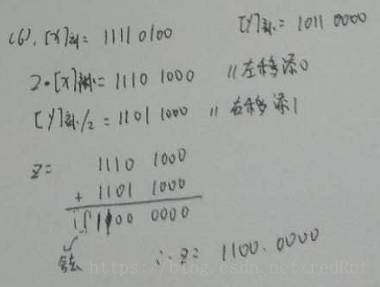 (6). [X]补= 1111 0100 [Y]补= 1011 0000
2*[X]补= 1110 1000 //左移添0
[Y]补/2 = 1101 1000 //右移添1
Z= 1110 1000
+ 1101 1000
1 1100 0000
舍去 ∴Z= 1100.0000
https://blog.csdn.net/redRnt